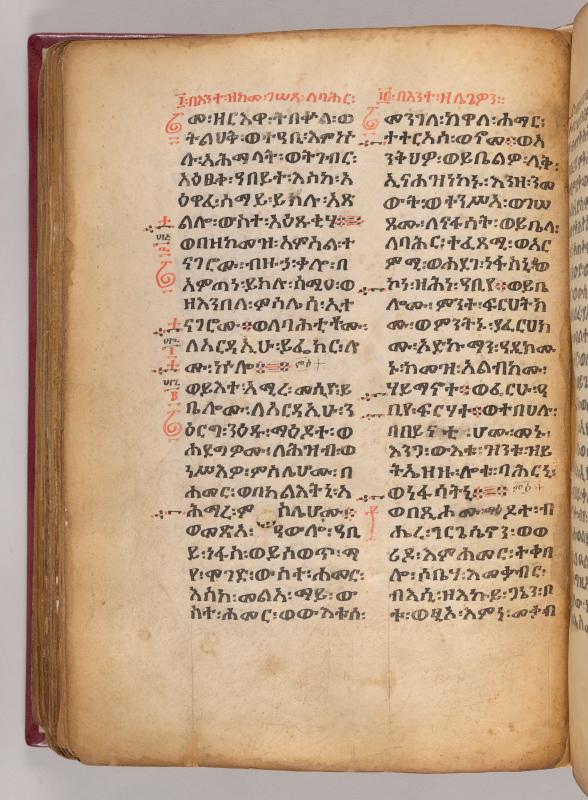 ፲፡በእንተ፡ዘከመ፡ገሠጸ፡ለባሕር፡
መ፡ዘርእዋ፡ትበቍል፡ወ
ትልህቅ፡ወተዓቢ፡እምኵ
ሉ፡አሕማላት፡ወትገብር፡
አዕፁቀ፡ዓበይተ፡እስከ፡አ
ዕዋፈ፡ሰማይ፡ይክሉ፡አጽ
ልሎ፡ውስተ፡አዕጹቂሃ፡።
ወበዘከመዝ፡አምሳል፡ተ
ናገሮሙ፡ብዙኃ፡ቃሎ፡በ
አምጣነ፡ይክሉ፡ሰሚዐ፡ወ
ዘእንበለ፡ምሳሌሰ፡ኢተ
ናገሮሙ።ወለባሕቲቶሙ፡
ለአርዳኢሁ፡ይፌክር፡ሎ
ሙ፡ኵሎ።
ወይእተ፡አሚረ፡መስዮ፡ይ
ቤሎሙ፡ለአርዳኢሁ፡ን
ዕርግ፡ንዕዱ፡ማዕዶተ፡ወ
ሐደግዎሙ፡ለሕዝብ፡ወ
ነሥእዎ፡ምስሌሆሙ፡በ
ሐመር፡ወበካልእትኒ፡አ
ሕማረ፡ም ስሌሆሙ።
ወመጽአ፡ ዓውሎ፡ዓቢ
ይ፡ነፋስ፡ወይሰወጥ፡ማ
የ፡ሞገድ፡ውስተ፡ሐመር፡
እስከ፡መልአ፡ማይ፡ው
ስተ፡ሐመር፡ወውእቱሰ፡
፲፩፡በእንተ፡ዘሌጌዎን።
መንገለ፡ከዋለ፡ሐማር፡
ተተርአሰ፡ወኖመ።ወአ
ንቅህዎ፡ወይቤልዎ፡ሊቅ፡
ኢናሕዝነከኑ፡እንዘ፡ንመ
ውት፡ወተንሥአ፡ወገሠ
ጾሙ፡ለነፋሳት፡ወይቤላ፡
ለባሕር፡ተፈጸሚ፡ወአር
ምሚ፡ወሐደገ፡ነፋስኒ፡ወ
ኮነ፡ዝሕነ፡ዓቢየ።ወይቤ
ሎሙ፡ምንት፡ፍርሀትክ
ሙ፡ወምንትኑ፡ያፈርህክ
ሙ፡ኦድኩማን፡ሃይድክሙ
ኑ፡ከመዝ፡አልብክሙ፡
ሃይማኖተ።ወፈርሁ፡ዓ
ቢየ፡ፍርሃተ።ወተባሀሉ፡
በበይናቲ ሆሙ፡መኑ፡
እንጋ፡ውእቱ፡ዝንቱ፡ዘይ
ትኤዘዙ፡ሎቱ፡ባሕርኒ፡
ወነፋሳትኒ።
ወበጺሐ ሙ፡ማዕዶተ፡ብ
ሔረ፡ጌርጌሴኖን፡ወወ
ሪዶ፡እምሐመር፡ተቀበ
ሎ፡ሶቤሃ፡እመቃብር፡
ብእሲ፡ዘእኩይ፡ጋኔን፡ቦ
ቱ፡ወፂኦ፡እምነ፡መቃብ